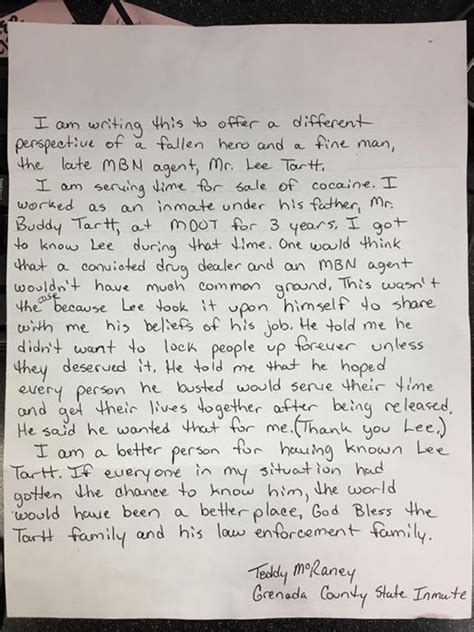 I am writing this to offer a different
perspective of a fallen hero and a fine man,
the late MBN agent, Mr. Lee Tartt.
I am serving time for sale of cocaine. I
worked as an inmate under his father, Mr.
Buddy Tartt, at MDOT for 3 years. I got
to know Lee during that time. One would think
that a convicted drug dealer and an MBN agent
wouldn't have much common ground. This wasn't
the case because Lee took it upon himself to share
with me his beliefs of his job. He told me he
didn't want to lock people up forever unless
they deserved it. He told me that he hoped
every person he busted would serve their time
and get their lives together after being released.
He said he wanted that for me. (Thank you Lee.)
I am a better person for having known Lee
Tartt. If everyone in my situation had
gotten the chance to know him, the world
would have been a better place, God Bless the
Tartt family and his law enforcement family.
Teddy McRaney
Grenada County State Inmate